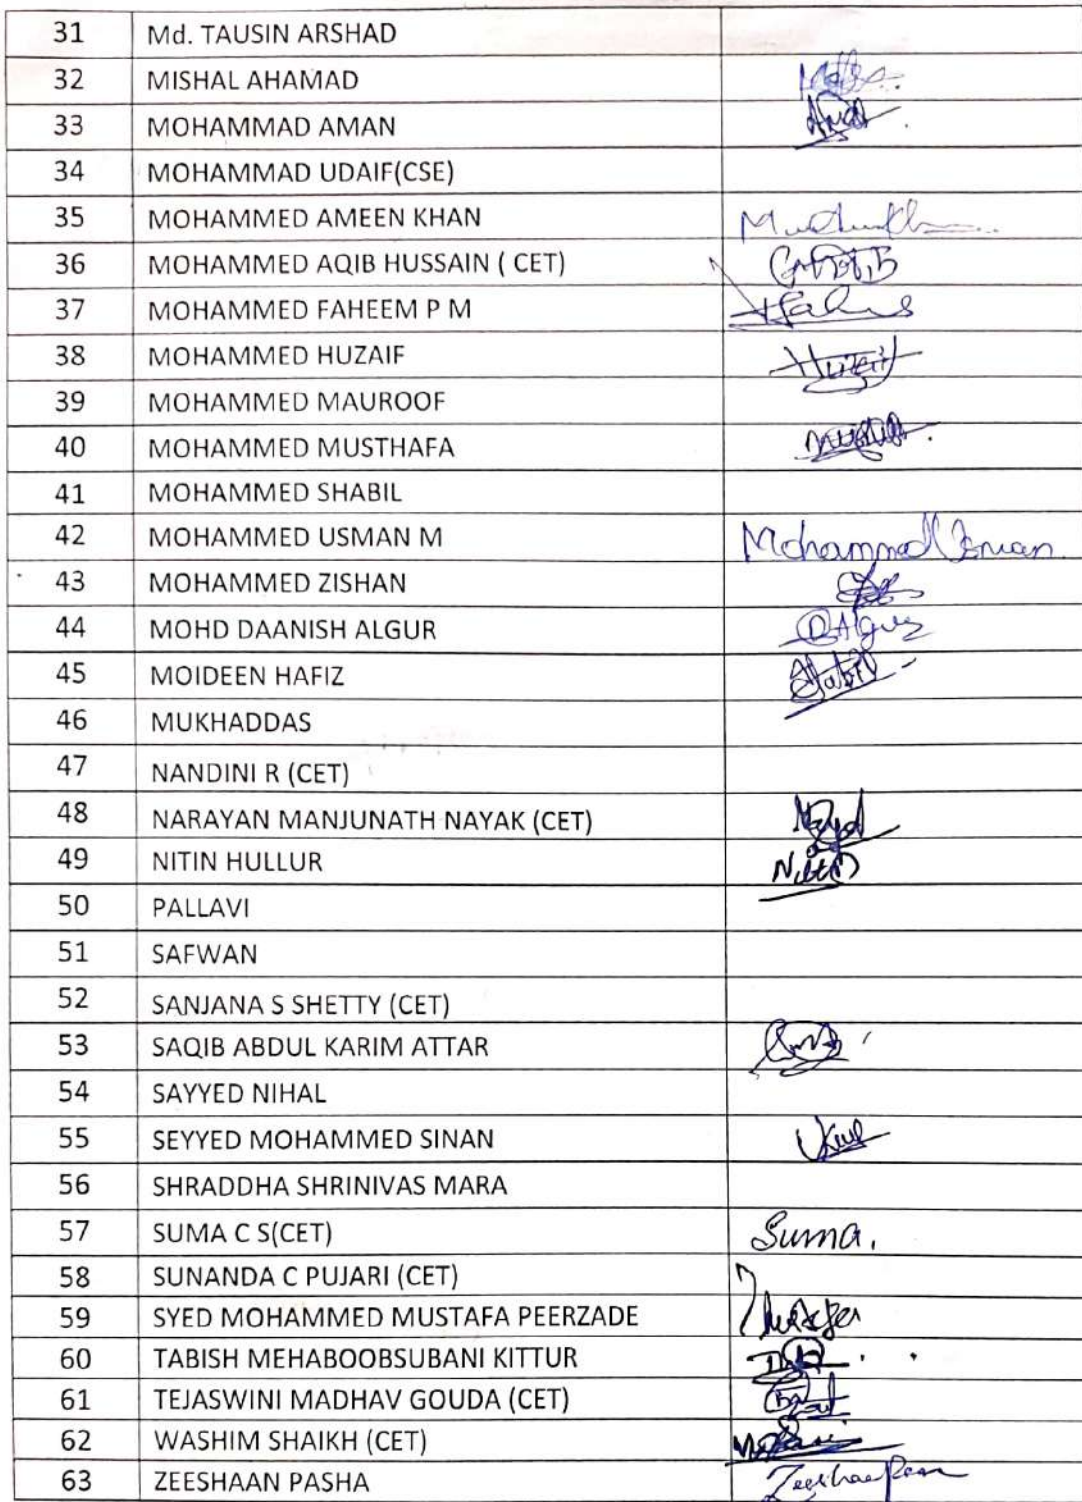 31 Md. TAUSIN ARSHAD
32 MISHAL AHAMAD
33 MOHAMMAD AMAN
34 MOHAMMAD UDAIF(CSE)
35 MOHAMMED AMEEN KHAN
36 MOHAMMED AQIB HUSSAIN ( CET)
37 MOHAMMED FAHEEM P M
38 MOHAMMED HUZAIF Huzaif
39 MOHAMMED MAUROOF
40 MOHAMMED MUSTHAFA
41 MOHAMMED SHABIL
42 MOHAMMED USMAN M Mohammed
43 MOHAMMED ZISHAN
44 MOHD DAANISH ALGUR DAlgur
45 MOIDEEN HAFIZ
46 MUKHADDAS
47 NANDINI R (CET)
48 NARAYAN MANJUNATH NAYAK (CET)
49 NITIN HULLUR Nitin
50 PALLAVI
51 SAFWAN
52 SANJANA S SHETTY (CET)
53 SAQIB ABDUL KARIM ATTAR
54 SAYYED NIHAL
55 SEYYED MOHAMMED SINAN
56 SHRADDHA SHRINIVAS MARA
57 SUMA C S(CET) Suma.
58 SUNANDA C PUJARI (CET)
59 SYED MOHAMMED MUSTAFA PEERZADE
60 TABISH MEHABOOBSUBANI KITTUR
61 TEJASWINI MADHAV GOUDA (CET)
62 WASHIM SHAIKH (CET)
63 ZEESHAAN PASHA